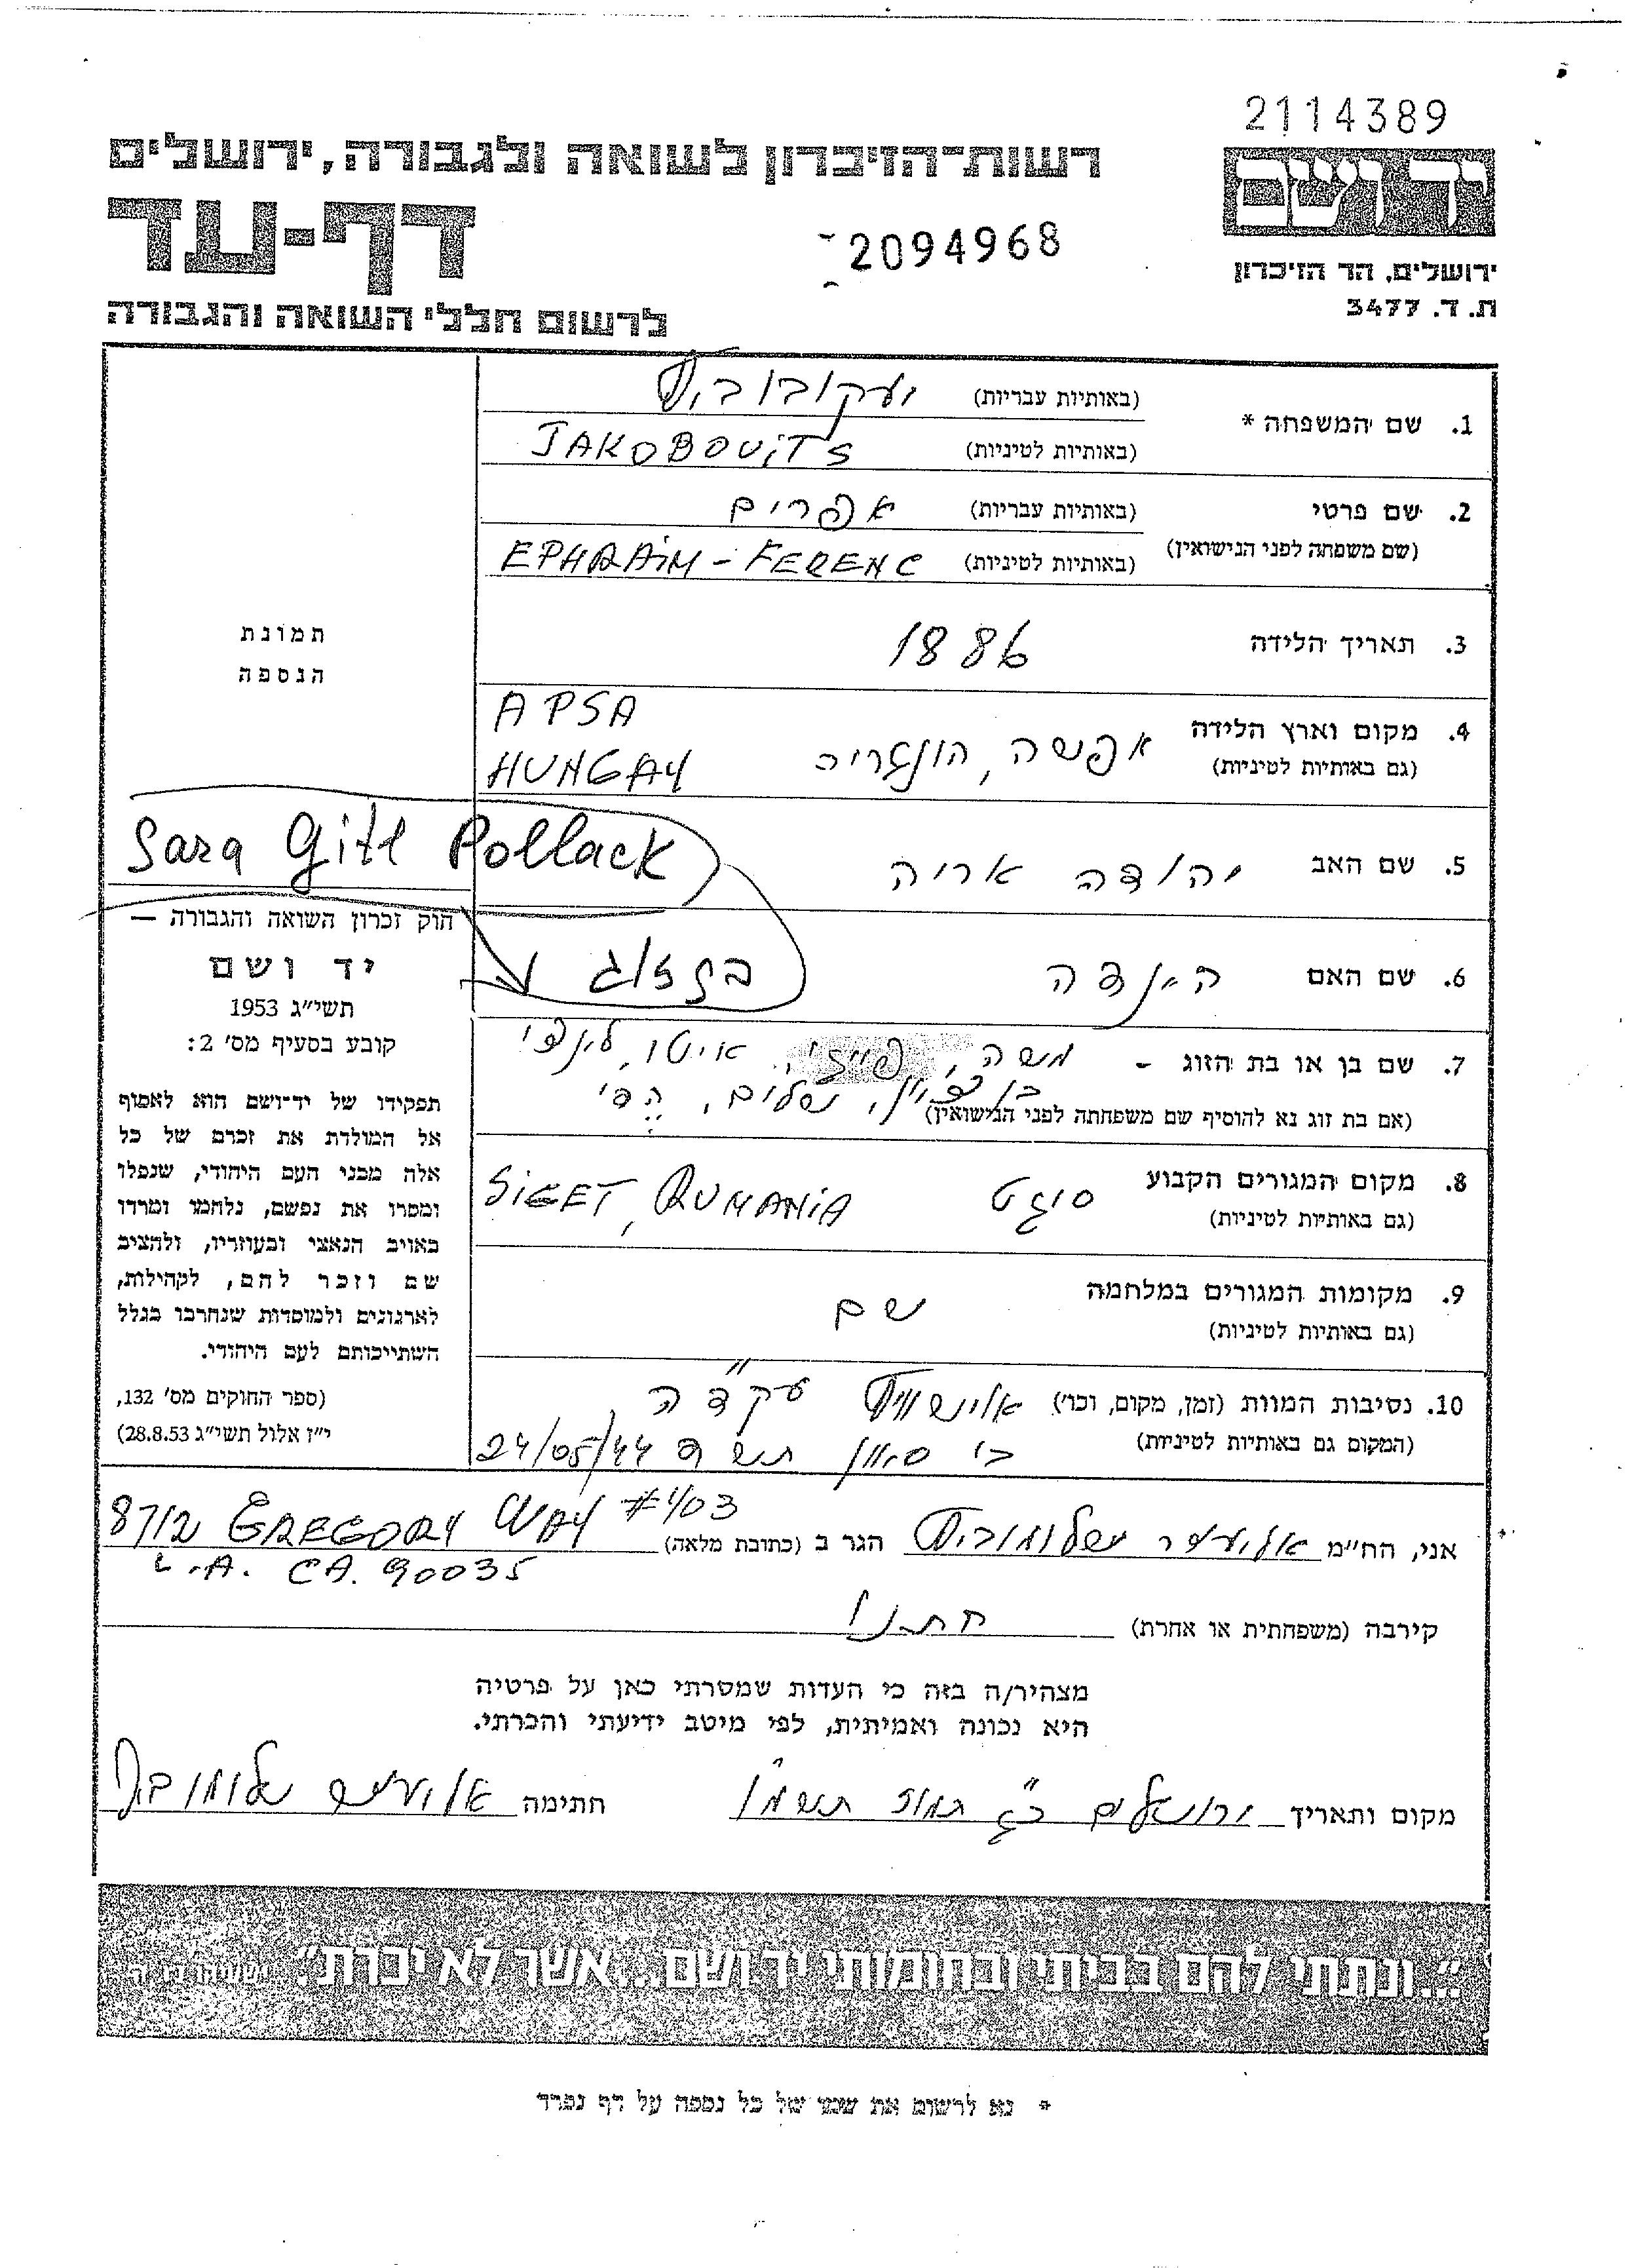 2114389
רשות־הזיכרון לשואה ולגבורה, ירושלים
יד ושם
דף-עד
2094968
ירושלים, הר הזיכרון
ת. ד. 3477
לרשום חללי השואה והגבורה
1. שם המשפחה * (באותיות עבריות) יעקובוביץ
(באותיות לטיניות) JAKOBOVITS
2. שם פרטי (באותיות עבריות) אפרים
(שם משפחה לפני הנישואין) (באותיות לטיניות) EPHRAIM - FERENC
תמונת
הנספה
3. תאריך הלידה 1886
4. מקום וארץ הלידה אפשה, הונגריה APSA
(גם באותיות לטיניות) HUNGAY
Sara Gitl Pollack
5. שם האב יהודה אריה
6. שם האם הינדה
בן זוג
7. שם בן או בת הזוג - משה, איטו,
(אם בת זוג נא להוסיף שם משפחתה לפני הנישואין) בן ציון, שלום,
8. מקום המגורים הקבוע סיגט SIGET, RUMANIA
(גם באותיות לטיניות)
9. מקומות המגורים במלחמה שם
(גם באותיות לטיניות)
10. נסיבות המוות (זמן, מקום, וכו') אוישוויץ עקד"ה
(המקום גם באותיות לטיניות) ב' סיון תש"ד 24/05/44
חוק זכרון השואה והגבורה —
יד ושם
תשי"ג 1953
קובע בסעיף מס' 2:
תפקידו של יד־ושם הוא לאסוף
אל המולדת את זכרם של כל
אלה מבני העם היהודי, שנפלו
ומסרו את נפשם, נלחמו ומרדו
באויב הנאצי ובעוזריו, ולהציב
שם וזכר להם, לקהילות,
לארגונים ולמוסדות שנחרבו בגלל
השתייכותם לעם היהודי.
(ספר החוקים מס' 132,
י"ז אלול תשי"ג 28.8.53)
אני, הח"מ אליעזר שלומוביץ הגר ב (כתובת מלאה) 8712 GREGORY WAY #103
L.A. CA. 90035
קירבה (משפחתית או אחרת) חתנו
מצהיר/ה בזה כי העדות שמסרתי כאן על פרטיה
היא נכונה ואמיתית, לפי מיטב ידיעתי והכרתי.
מקום ותאריך ירושלים כ"ג תמוז תשמ"ו חתימה אליעזר שלומוביץ
"...ונתתי להם בביתי ובחומותי יד ושם...אשר לא יכרת". ישעיהו נו, ה
* נא לרשום את שמו של כל נספה על דף נפרד